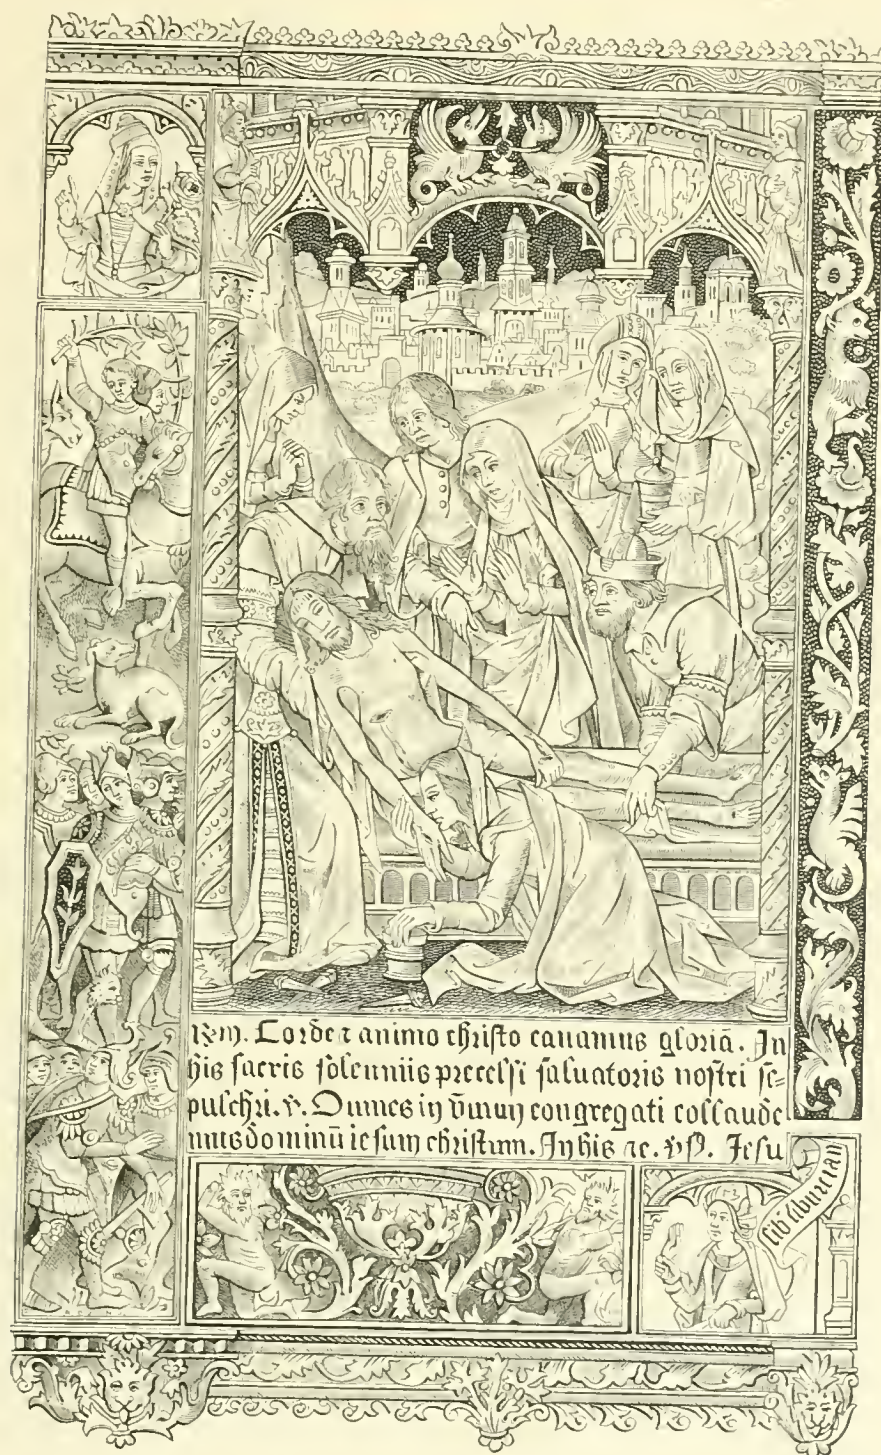 Corde ⁊ animo christo canamus gloriā. In
his sacris solenniis precelsi saluatoris nostri se=
pulchri. ℣. Omnes in vnum congregati collaude
mus dominū iesum christum. In his ⁊c. Jesu
sib' tiburtian